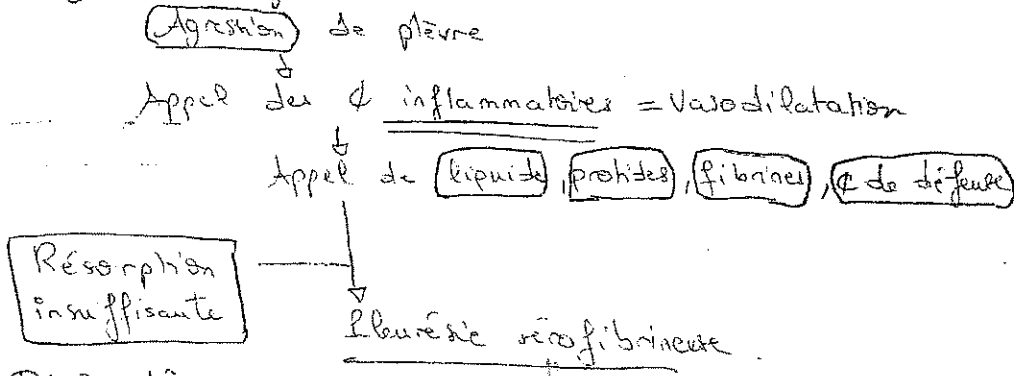 Agression de plèvre
Appel des ¢ inflammatoires = Vasodilatation
Appel de liquide, protides, fibrines, ¢ de défense
Résorption
insuffisante
Pleurésie sérofibrineuse.